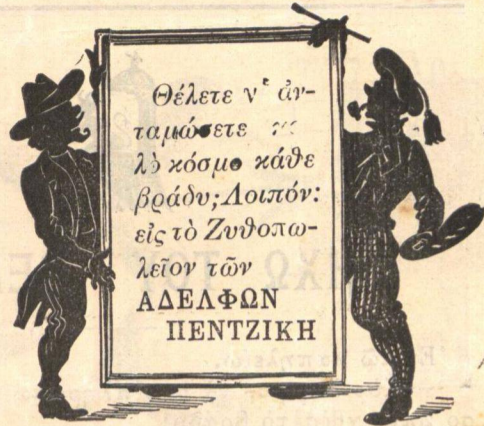 Θέλετε ν' ἀν-
ταμώσετε κα
λὸ κόσμο κάθε
βράδυ; Λοιπόν:
εἰς τὸ Ζυθοπω-
λεῖον τῶν
ΑΔΕΛΦΩΝ
ΠΕΝΤΖΙΚΗ